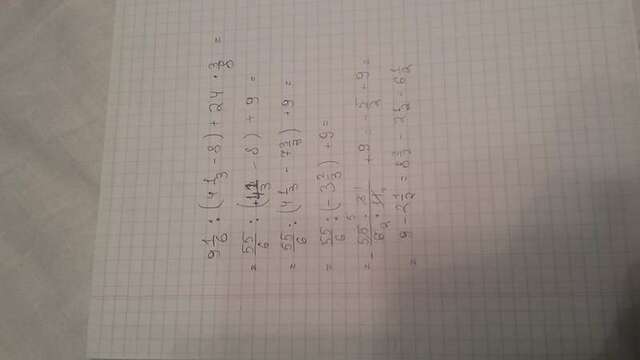 9 1/6 : (4 1/3 - 8) + 24 · 3/8 =
= 55/6 : (4 1/3 - 8) + 9 =
= 55/6 : (4 1/3 - 7 3/3) + 9 =
= 55/6 : (- 3 2/3) + 9 =
= - 55 5 · 3 1 / 6 2 · 11 1 + 9 = - 5/2 + 9 =
= 9 - 2 1/2 = 8 2/2 - 2 1/2 = 6 1/2